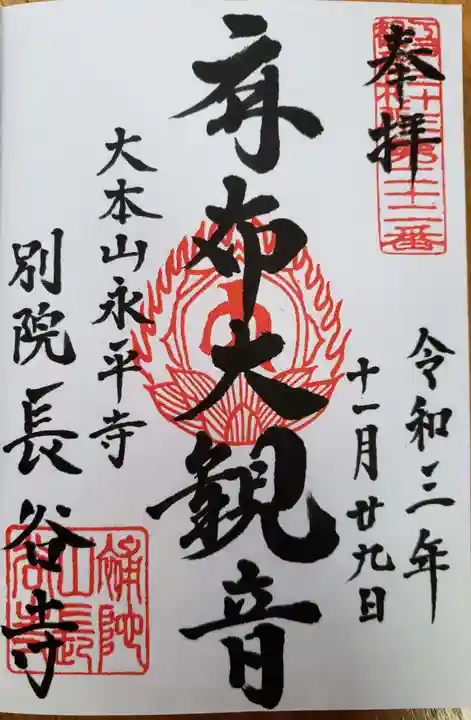 奉拝
令和三年
十一月廿九日
麻布大観音
大本山永平寺
別院長谷寺